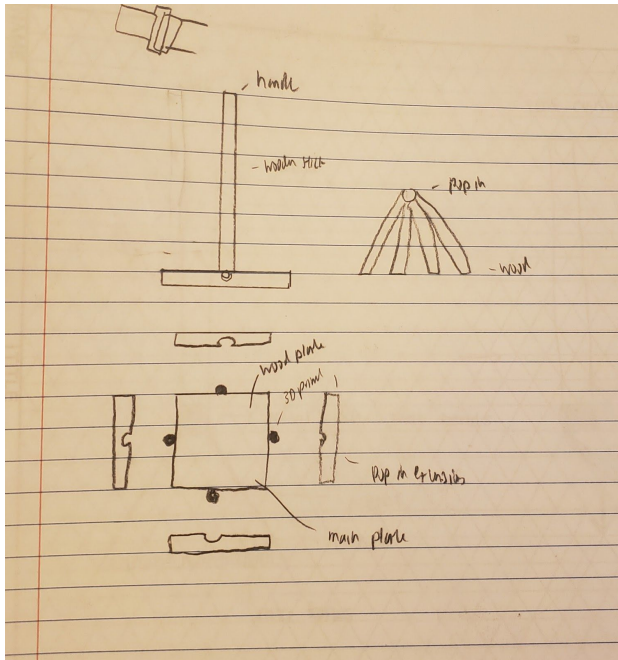 handle
- wooden stick
- pop in
- wood
wood plate
3D print
pop in extensions
main plate